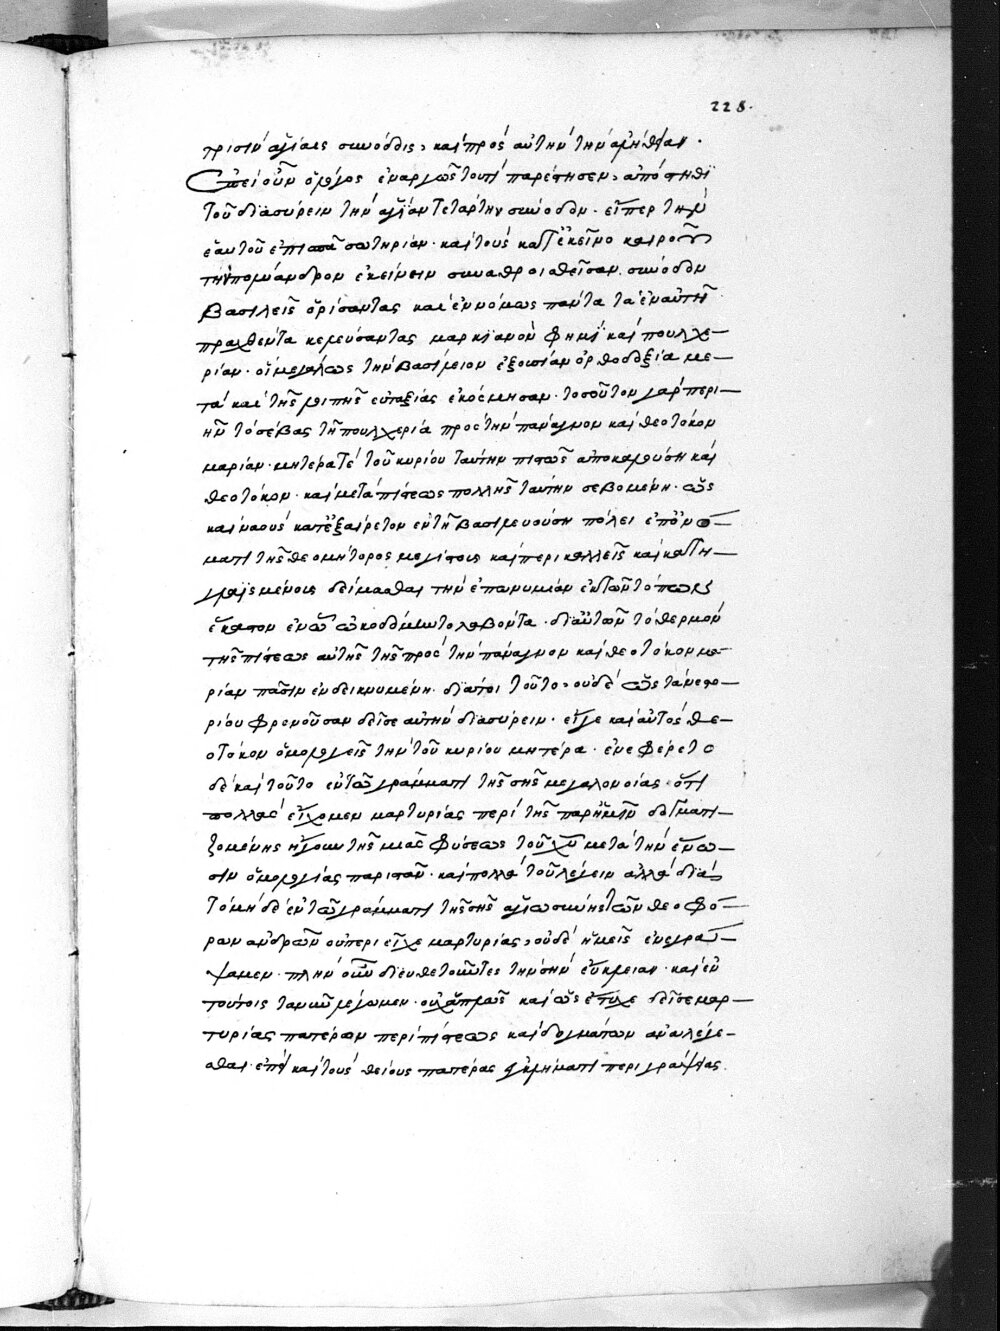 228.
τρισὶν ἁγίαις συνόδοις, καὶ πρὸς αὐτὴν τὴν ἀλήθειαν.
Ἐπεὶ οὖν ὁ λόγος ἐναργῶς τουτὶ παρέστησεν, ἀπόστηθι
τοῦ διασύρειν τὴν ἁγίαν τετάρτην σύνοδον. εἴπερ τῆς
ἑαυτοῦ σωτηρίαν. καὶ τοὺς κατ' ἐκεῖνο καιροῦ
τὴν πολυάνδρον ἐκείνην συναθροισθεῖσαν σύνοδον
βασιλεῖς ὁρίσαντας καὶ ἐννόμως πάντα τὰ ἐν αὐτῇ
πραχθέντα κελεύσαντας μαρκιανὸν φημὶ καὶ πουλχε-
ρίαν. οἳ μεγάλως τὴν βασίλειον ἐξουσίαν ὀρθοδοξία με-
τὰ καὶ τῆς λοιπῆς εὐταξίας ἐκόσμησαν. τοσοῦτον γὰρ περι-
ῆν τὸ σέβας τῇ πουλχερία πρὸς τὴν πάναγνον καὶ θεοτόκον
μαρίαν. μητέρα τὲ τοῦ κυρίου ταύτην πιστῶς ἀποκαλούση καὶ
θεοτόκον. καὶ μετὰ πίστεως πολλῆς ταύτην σεβομένη. ὡς
καὶ ναοὺς κατεξαίρετον ἐν τῇ βασιλευούση πόλει ἐπ' ὀνό-
ματι τῆς θεομήτορος μεγίστους καὶ περικαλλεῖς καὶ κατη-
γλαϊσμένους δείμασθαι τὴν ἐπωνυμίαν ἐκ τῶν τόπων
ἕκαστον ἐν ᾧ ᾠκοδόμητο λαβόντα. δι' αὐτῶν τὸ θερμὸν
τῆς πίστεως αὐτῆς τῆς πρὸς τὴν πάναγνον καὶ θεοτόκον μα-
ρίαν πᾶσιν ἐνδεικνυμένη. διάτοι τοῦτο, οὐδὲ ὡς τὰ νεστο-
ρίου φρονοῦσαν δεῖ σε αὐτὴν διασύρειν. εἴγε καὶ αὐτὸς θε-
οτόκον ὁμολογεῖς τὴν τοῦ κυρίου μητέρα. ἐνεφέρετο
δὲ καὶ τοῦτο ἐν τῷ γράμματι τῆς σῆς μεγαλονοίας. ὅτι
πολλὰς εἴχομεν μαρτυρίας περὶ τῆς παρ' ἡμῖν δογματι-
ζομένης ἤγουν τῆς μιᾶς φύσεως τοῦ χυ μετὰ τὴν ἕνω-
σιν ὁμολογίας παριστᾶν. καὶ πολλὰ τοῦ λέγειν ἀλλὰ διὰ
τὸ μηδὲ ἐν τῷ γράμματι τῆς σῆς ἁγιωσύνης τῶν θεοφό-
ρων ἀνδρῶν οὑπεριεῖχε μαρτυρίας, οὐδὲ ἡμεῖς ἐνεγρά-
ψαμεν. πλὴν οὖν διευθετοῦντες τὴν σὴν εὔκλειαν. καὶ ἐν
τούτοις τανῦν λέγωμεν. οὐχ ἁπλῶς καὶ ὡς ἔτυχε δεῖ σε μαρ-
τυρίας πατέρων περὶ πίστεως καὶ δογμάτων ἀναλέγε-
σθαι. ἐπεὶ καὶ τοὺς θείους πατέρας ἐγκλήματι περιγράψεις.